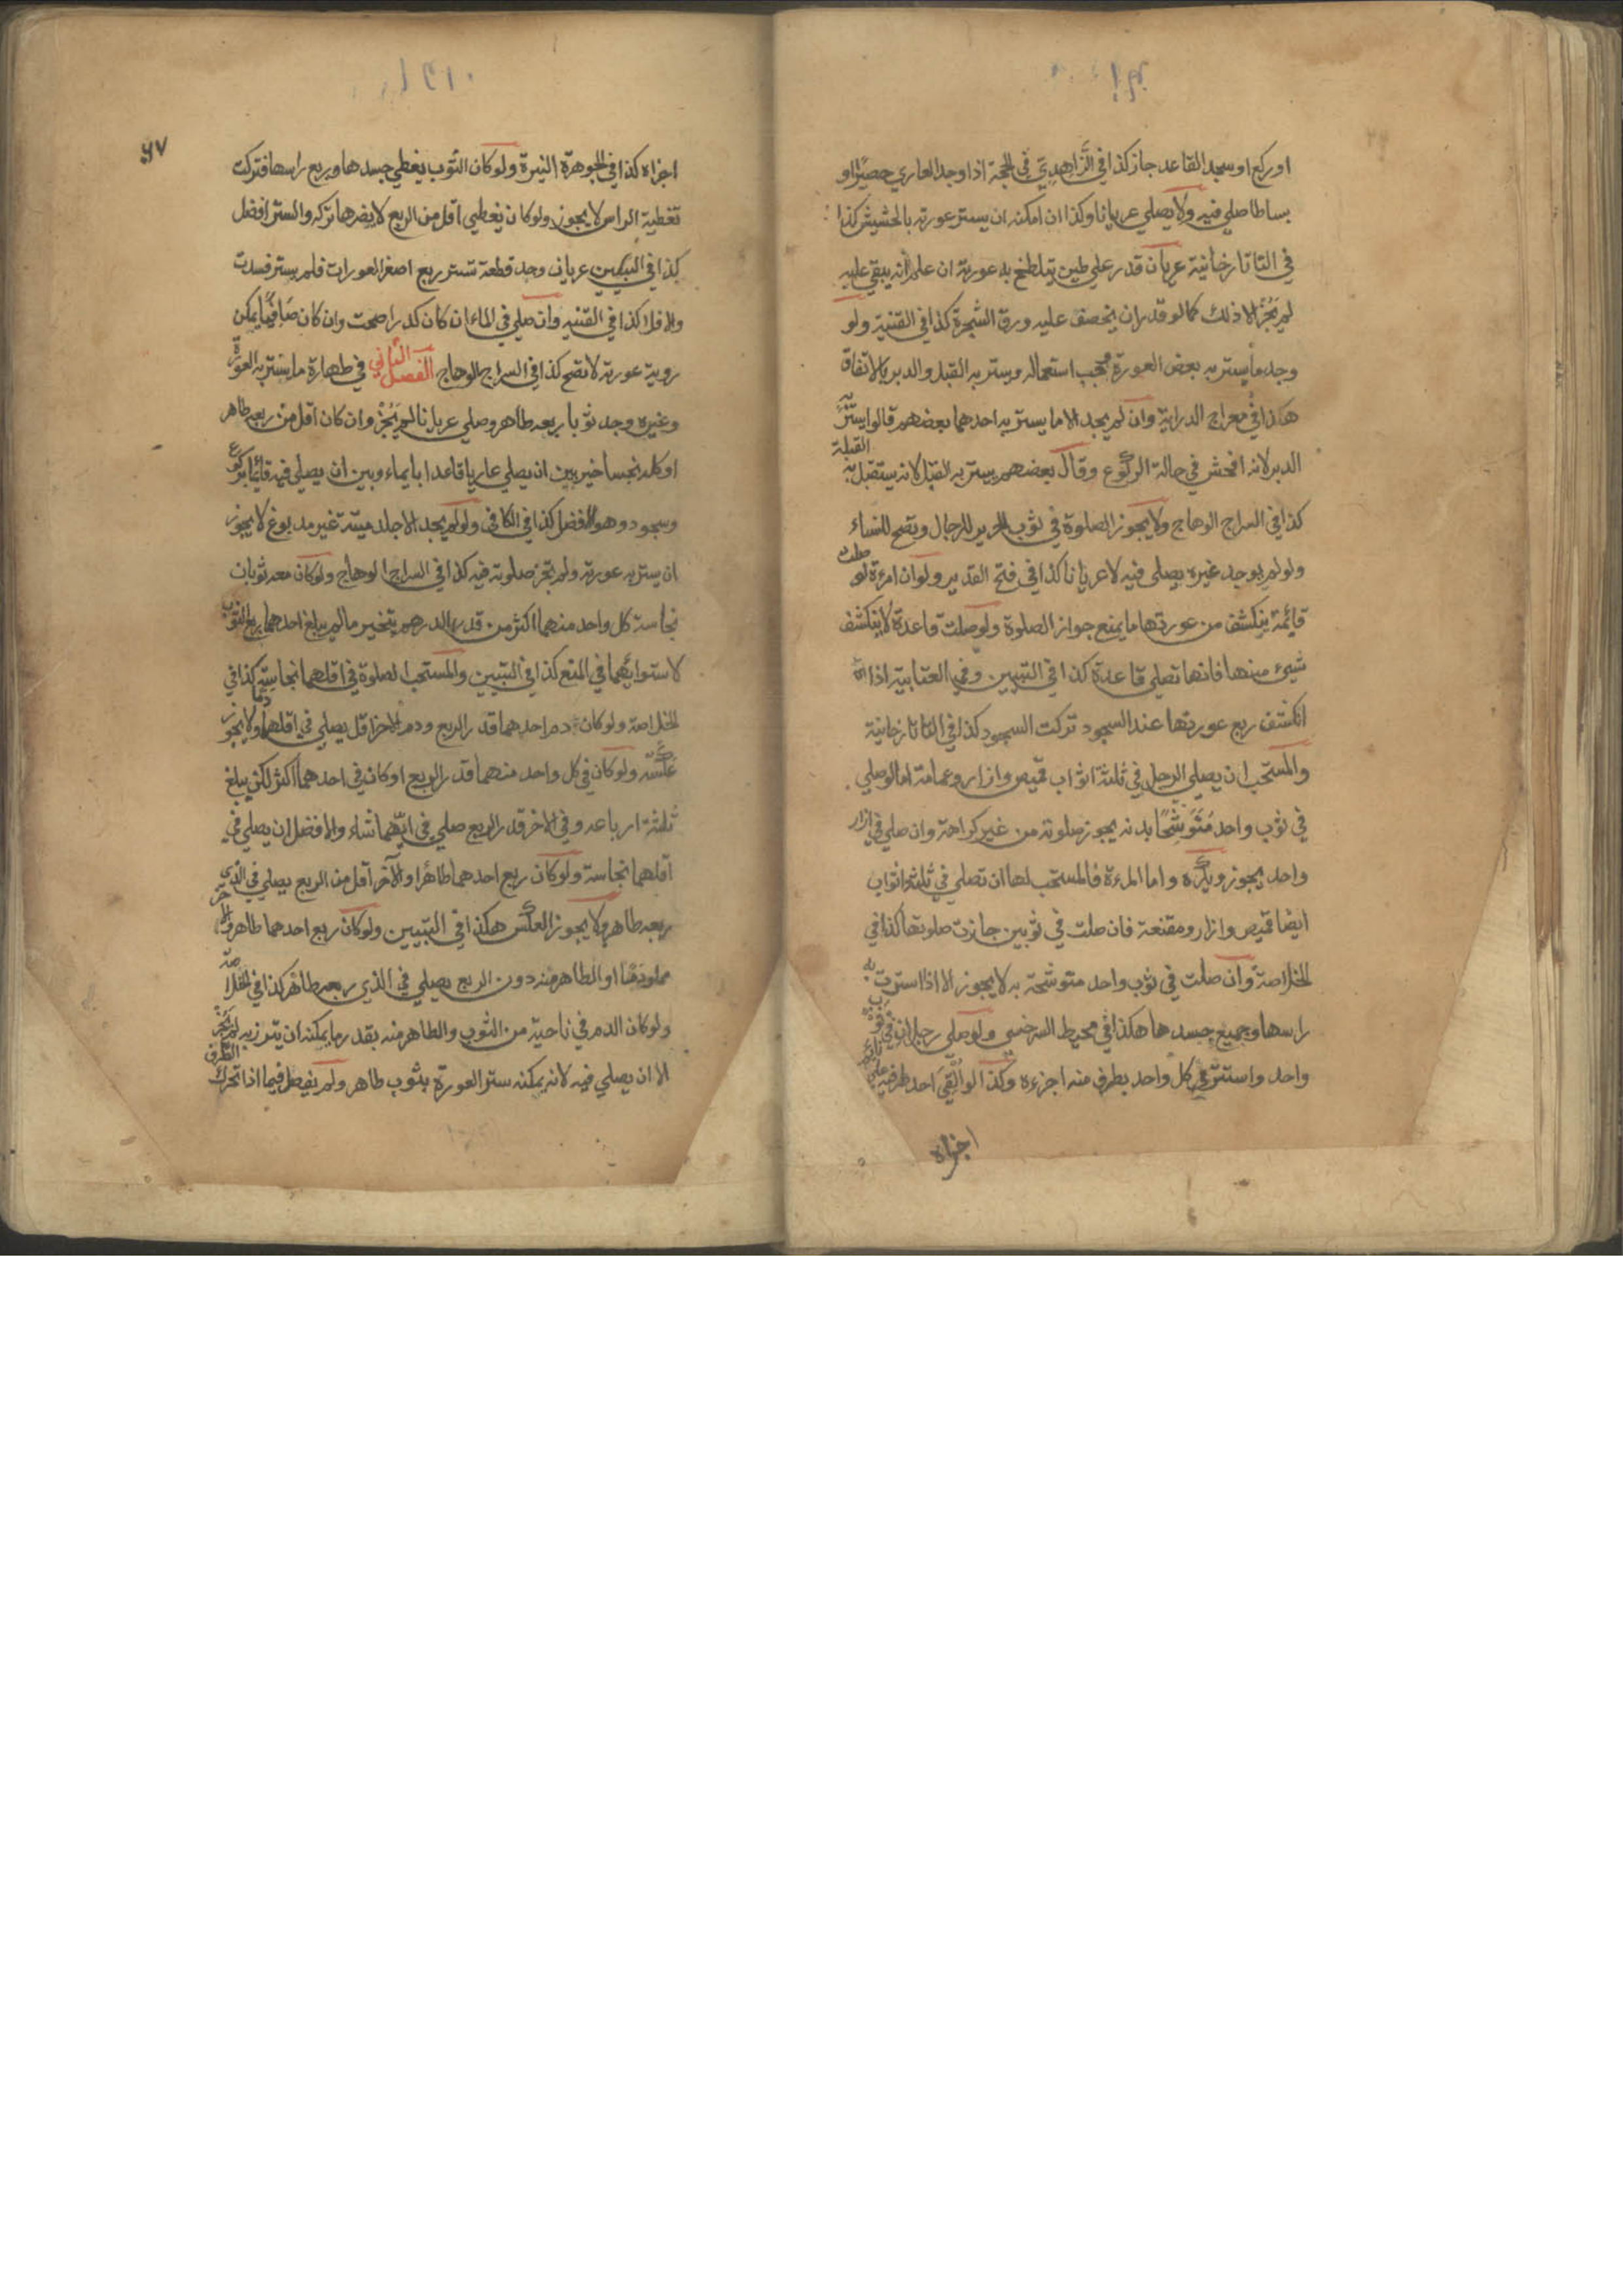 اوركع او سجد القاعد جاز كذا في الزاهدي في الحجة اذا وجد العاري حصيرا او
بساطا صلي فيه ولا يصلي عريانا وكذا ان امكنه ان يستر عورته بالحشيش كذا
في التاتارخانية عريان قدر علي طين يتلطخ به عورته ان علم انه يبقي عليه
لم يَجُز الا ذلك كما لو قدر ان يخصف عليه ورق الشجرة كذا في القنية ولو
وجد ما يستر به بعض العورة يجب استعماله ويستر به القبل والدبر بالاتفاق
هكذا في معراج الدراية وان لم يجد الا ما يستر به احدهما بعضهم قالوا يستر به
الدبر لانه افحش في حالة الركوع وقال بعضهم يستر به القبل لانه يستقبل به القبلة
كذا في السراج الوهاج ولا يجوز الصلوة في ثوب الحرير للرجال ويصح للنساء
ولو لم يوجد غيره يصلي فيه لا عريانا كذا في فتح القدير ولو ان امرءة لو صلت
قائمة ينكشف من عورتها ما يمنع جواز الصلوة ولو صلت قاعدة لا ينكشف
شيئ منها فانها تصلي قاعدة كذا في التبيين وفي العتابية اذا
انكشف ربع عورتها عند السجود تركت السجود كذا في التاتارخانية
والمستحب ان يصلي الرجل في ثلثة اثواب قميص وازار وعمامة اما لو صلي
في ثوب واحد مُتَوَشِّحًا به يجوز صلوته من غير كراهة وان صلي في ازار
واحد يجوز ويكره واما المرءة فالمستحب لها ان تصلي في ثلثة اثواب
ايضا قميص وازار ومقنعة فان صلت في ثوبين جازت صلوتها كذا في
الخلاصة وان صلت في ثوب واحد متوشحة به لا يجوز الا اذا استرت به
راسها وجميع جسدها هكذا في محيط السرخسي ولو صلي رجلان في ثوب
واحد واستتر كل واحد بطرف منه اجزءه وكذا لو اُلْقِيَ احد طرفيه علي نائم
اجزاه
٦٧
اجزاه كذا في الجوهرة النيرة ولو كان الثوب يغطي جسدها وربع راسها فتركت
تغطية الراس لا يجوز ولو كان يغطي اقل من الربع لا يضرها تركه والستر افضل
كذا في التبيين عريان وجد قطعة تستر ربع اصغر العورات فلم يستر فسدت
والا فلا كذا في القنيه وان صلي في الماء ان كان كدرا صحت وان كان صَافِيًا يمكن
روية عورته لا تصح كذا في السراج الوهاج الفصل الثاني في طهارة ما يستر به العورة
وغيره وجد ثوبا ربعه طاهر وصلي عريانا لم يَجُزْ وان كان اقل من ربعه طاهر
او كله نجسا خير بين ان يصلي عاريا قاعدا بايماء وبين ان يصلي فيه قائما بركوع
وسجود وهو الافضل كذا في الكافي ولو لم يجد الا جلد ميتة غير مدبوغ لا يجوز
ان يستر به عورته ولم تجز صلوته فيه كذا في السراج الوهاج ولو كان معه ثوبان
نجاسة كل واحد منهما اكثر من قدر الدرهم يتخير ما لم يبلغ احدهما ربع الثوب
لاستوائهما في المنع كذا في التبيين والمستحب الصلوة في اقلهما نجاسة كذا في
الخلاصة ولو كان دم احدهما قدر الربع ودم الاخر اقل يصلي في اقلهما دما ولا يجوز
عكسه ولو كان في كل واحد منهما قدر الربع او كان في احدهما اكثر لكن يبلغ
ثلثة ارباعه وفي الاخر قدر الربع صلي في ايهما شاء والافضل ان يصلي في
اقلهما نجاسة ولو كان ربع احدهما طاهرا والآخر اقل من الربع يصلي في الذي
ربعه طاهر ولا يجوز العكس هكذا في التبيين ولو كان ربع احدهما طاهر والاخر
مملو دَمًا او الطاهر منه دون الربع يصلي في الذي ربعه طاهر كذا في الخلاصة
ولو كان الدم في ناحية من الثوب والطاهر منه بقدر ما يمكنه ان يتزر به لم يَجُزْ
الا ان يصلي فيه لانه يمكنه ستر العورة بثوب طاهر ولم يفصل فيما اذا تحرك الطرف